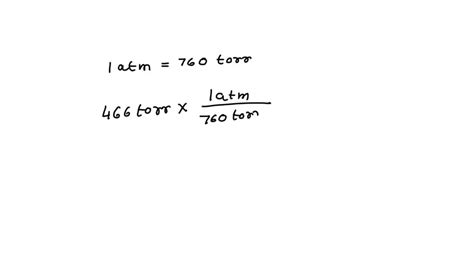 1 atm = 760 torr
466 torr x 1 atm
760 torr